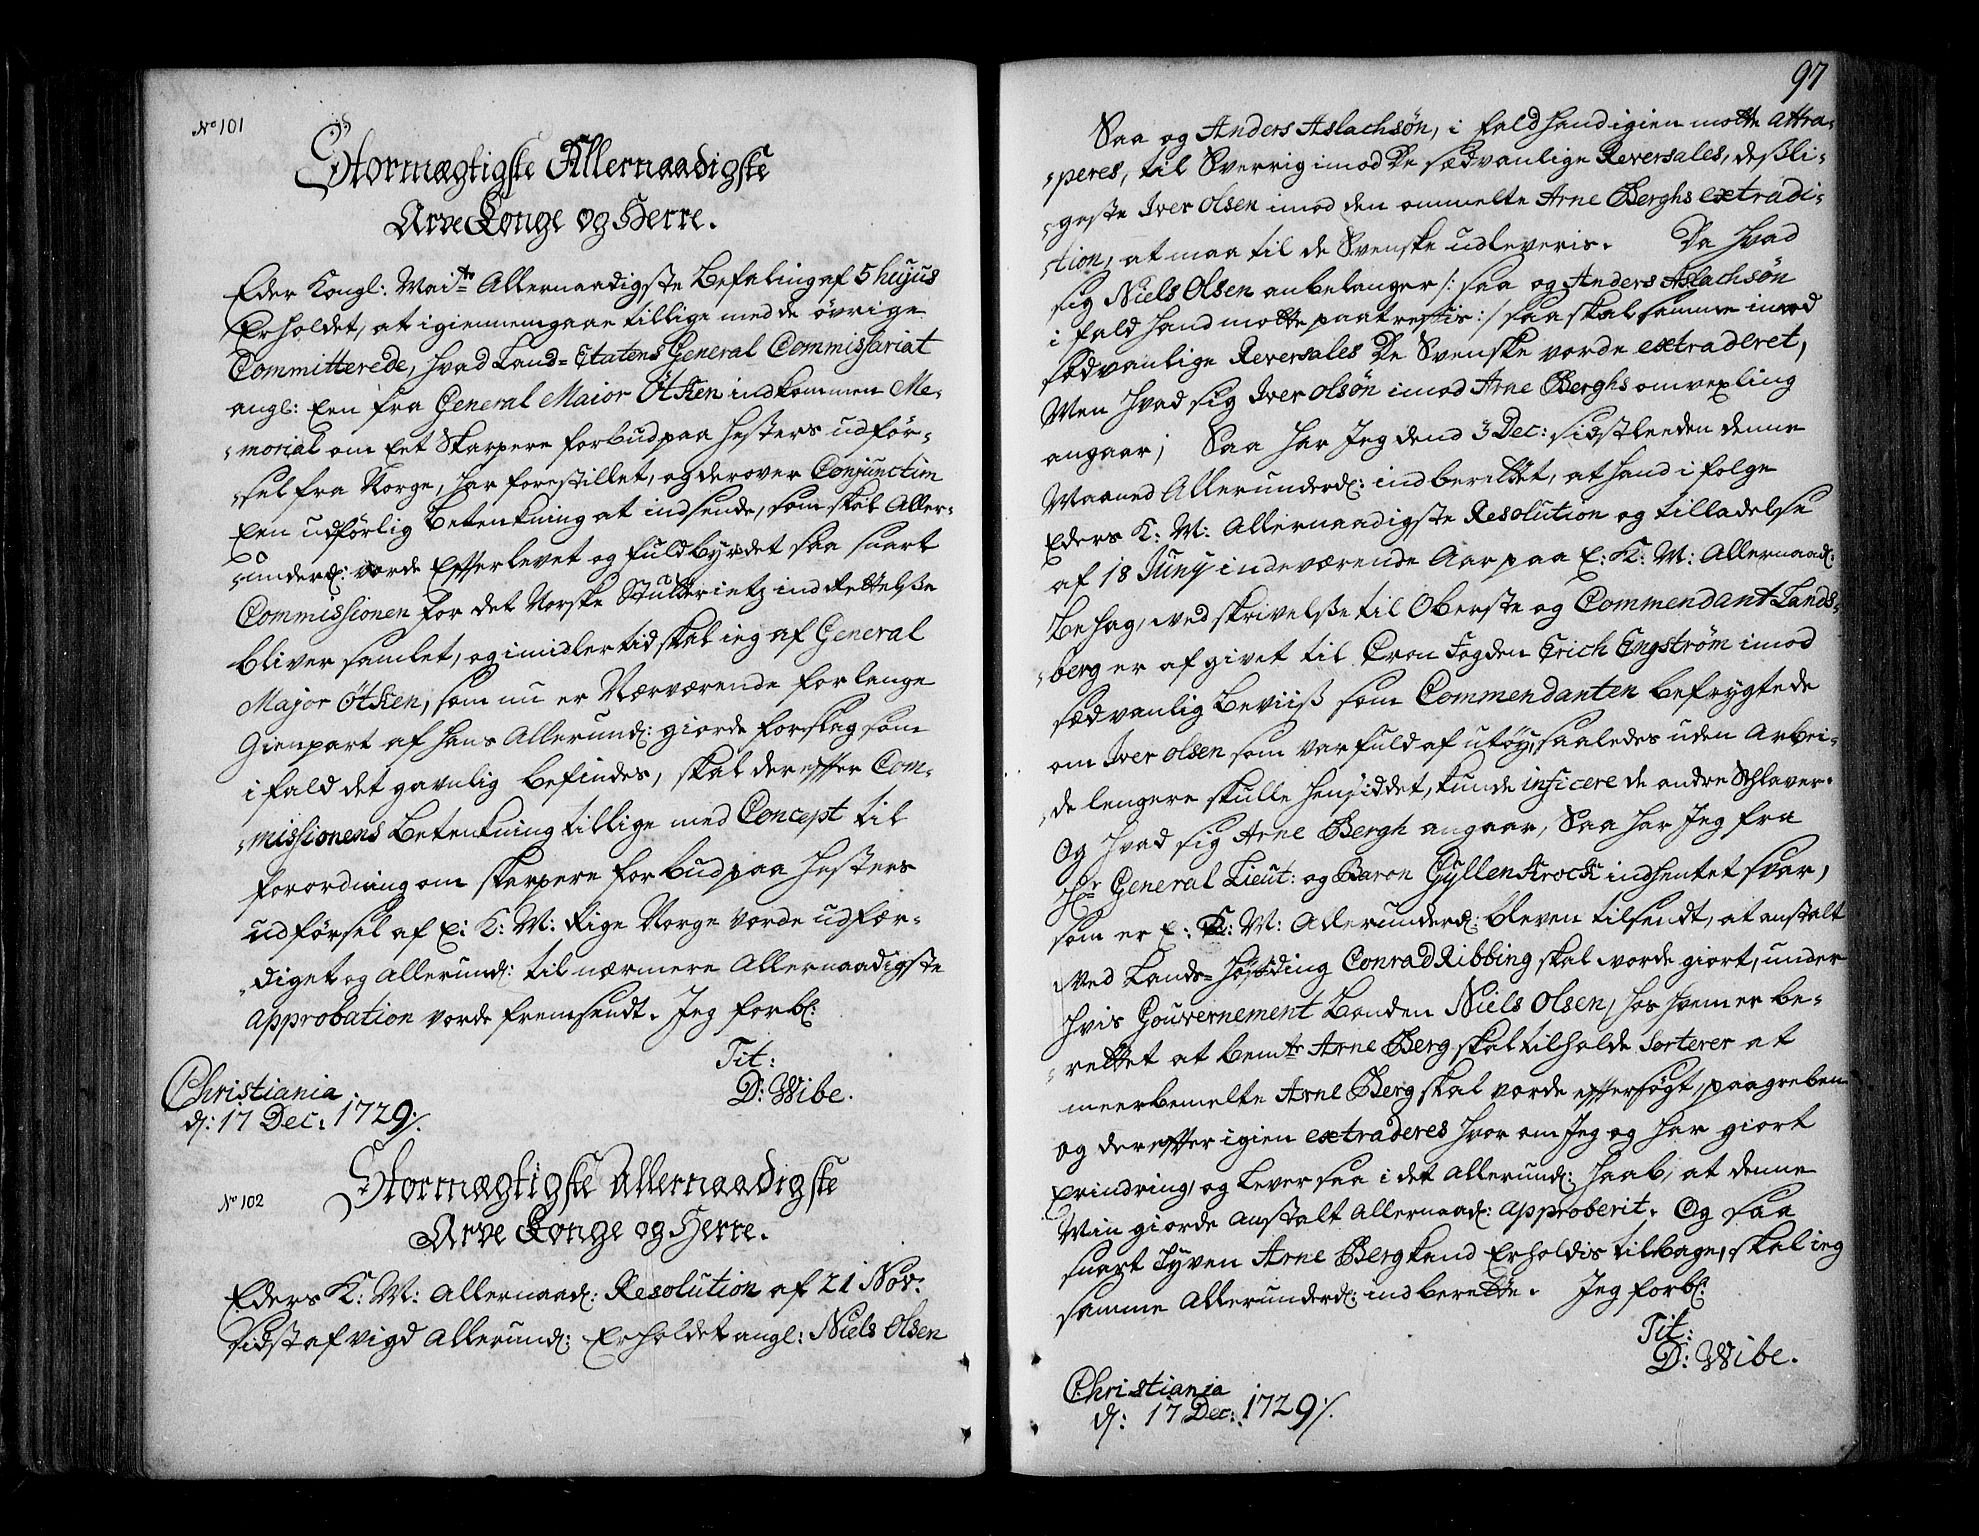 No 101
Stormægtigste Allernaadigste
Arve Konge og Herre.
Eder Kongl: Maits Allernaadigste Befaling af 5 hujus
Erholdet, at igiennemgaae tillige med de övrige
Committerede, hvad Land=Etatens General Commissariat
angl: Een fra General Maior Ötken indkommen Me-
-morial om Eet Skarpere forbud paa Hesters udför-
-sel fra Norge, har forestillet, og derover Conjunctim
Een udförlig Betenkning at indsende, som skal Aller-
-underd: vorde Efterlevet og fuldbyrdet saa snart
Commissionen for det Norske Stutterietz indRettelße
bliver samlet, og imidlertid skal ieg af General
Major Ötken, som nu er Nærværende forlange
Gienpart af hans Allerund: giorde forslag som
i fald det gavnlig befindes, skal derefter Com-
-missionens Betenkning tillige med Concept til
forordning om skarpere forbud paa Hesters
udförsel af E: K: M: Rige Norge vorde udfær-
-diget og Allerund: til nærmere Allernaadigste
Approbation vorde fremsendt. Jeg forbl:
Tit:
D: Wibe.
Christiania
d: 17 Dec: 1729 ./.
No 102
Stormægtigste Allernaadigste
Arve Konge og Herre.
Eders K: M: Allernaad: Resolution af 21 Nov:
sidst afvigd Allerund: Erholdet angl: Niels Olsen
97
Saa og Anders Aslachsön, i fald hand igien motte attra-
-peres, til Sverrig imod De sædvanlige Reversales, deßli-
-geste Iver Olsen imod den ommelte Arne Berghs extradi-
-tion, at maa til de Svenske udleveris. Da hvad
sig Niels Olsen anbelanger /: saa og Anders Aslachsön
i fald hand motte paatreffis :/ saa skal samme imod
sædvanlige Reversales De Svenske vorde extraderet,
Men hvad sig Iver Olsön imod Arne Berghs omvexling
angaar; Saa har Jeg dend 3 Dec: sidstleeden denne
Maaned Allerunderd: indberettet, at hand i folge
Eders K: M: Allernaadigste Resolution og tilladelse
af 18 Juny indeværende Aar paa E: K: M: Allernaad:
Behag, ved skrivelße til Oberste og Commendant Lands-
-berg er afgivet til Cron Fogden Erich Engström imod
sædvanlig Beviiß som Commendanten befrygtede
om Iver Olsen som var fuld af utöy, saaledes uden Arbei-
-de lengere skulle hensiddet, kunde inficere de andre Schlaver.
Og hvad sig Arne Bergh angaar, Saa har Jeg fra
Hr General Lieut: og Baron Gyllenkrock indhentet svar,
som er E: K: M: Allerunderd: bleven tilsendt, at anstalt
ved Lands=Höfding Conrad Ribbing skal vorde giort, under
hvis Gouvernement Bonden Niels Olsen, hos hvem er be-
-rettet at bemte Arne Berg skal tilholde Sorterer at
meerbemelte Arne Berg skal vorde eftersögt, paagreben
og derefter igien extraderes hvor om Jeg og har giort
Erindring, og lever saa i det allerund: Haab, at denne
Min giorde Anstalt Allernaad: approberit. Og saa
snart Tyven Arne Berg kand Erholdis tilbage, skal ieg
samme Allerunderd: indberette. Jeg forbl:
Tit:
D: Wibe.
Christiania
d: 17 Dec: 1729 ./.